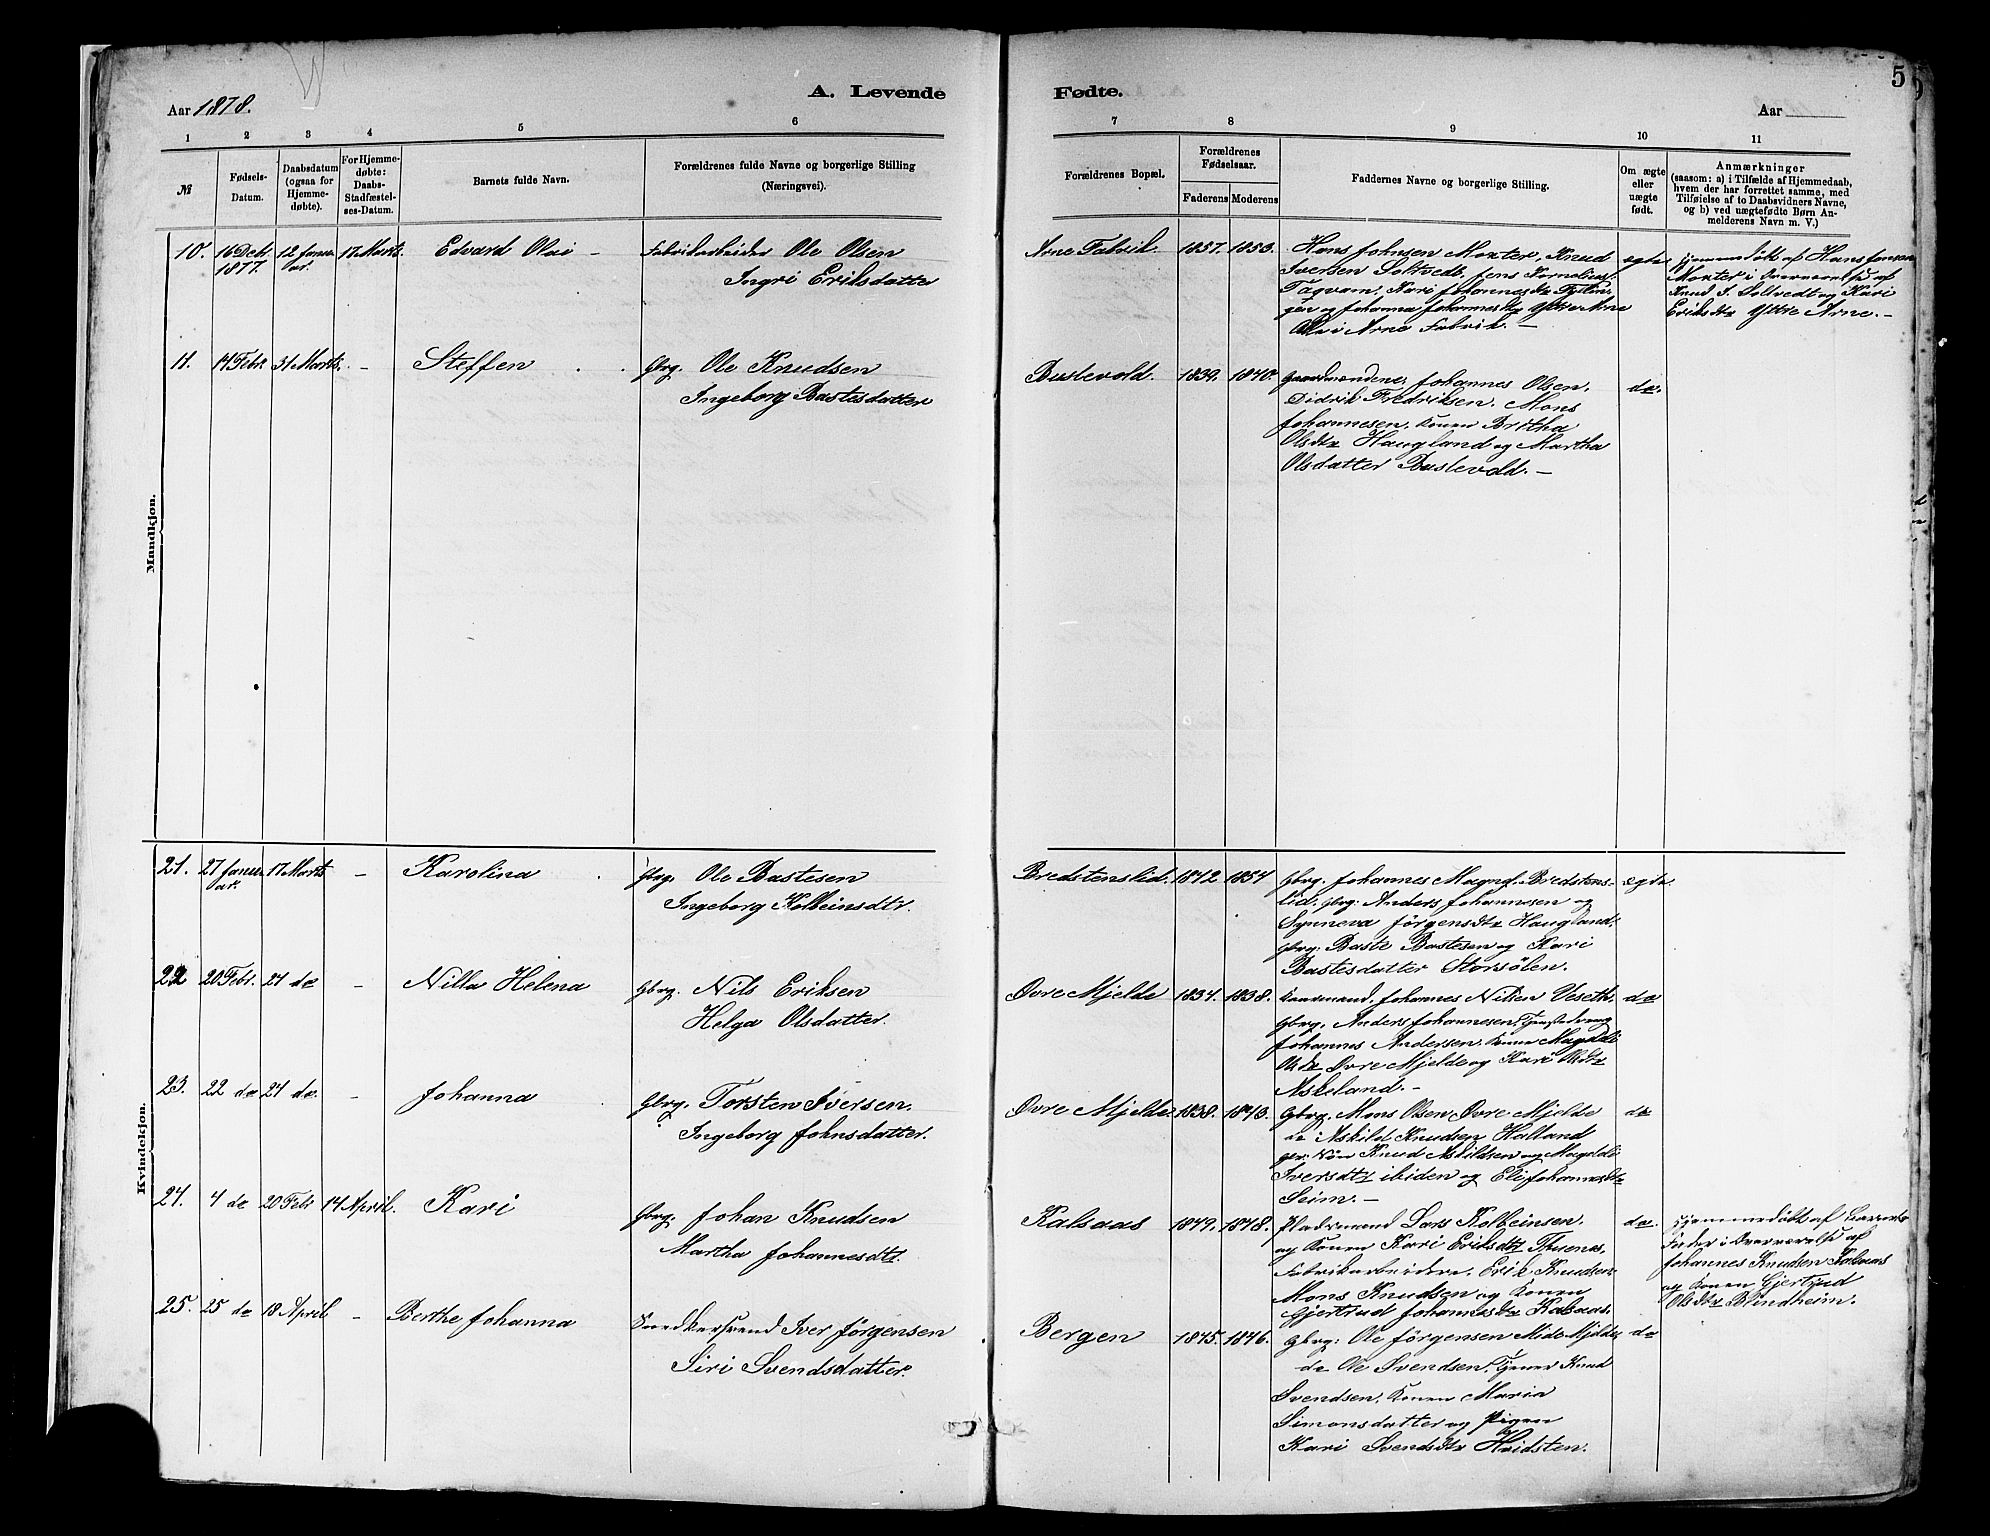 Aar 1878.
A. Levende
Fødte.
Aar
5
1 2 3 4 5 6 7 8 9 10 11
№
Fødsels-
Datum.
Daabsdatum
(ogsaa for
Hjemme-
døbte).
For Hjemme-
døbte:
Daabs-
Stadfæstel-
ses-Datum.
Barnets fulde Navn.
Forældrenes fulde Navne og borgerlige Stilling
(Næringsvei).
Forældrenes Bopæl.
Forældrenes
Fødselsaar.
Faderens Moderens
Faddernes Navne og borgerlige Stilling.
Om ægte
eller
uægte
født.
Anmærkninger
(saasom: a) i Tilfælde af Hjemmedaab,
hvem der har forrettet samme, med
Tilføielse af to Daabsvidners Navne,
og b) ved uægtefødte Børn An-
melderens Navn m. V.)
Mandkjøn.
10. 16 Dek. 1877. 12 Janu-
ar. 17 Marts. Edvard Olai -
Fabrikarbeider Ole Olsen
Ingri Eriksdatter
Arne Fabrik. 1857. 1853.
Hans Johnsen Moxter, Knud
Iversen Soltvedt, Jens Kornelius
Tagvam, Kari Johannesdtr
og Johanna Johannesdtr Yttre Arne
Arne Fabrik. -
ægte
Hjemmedøbt af Hans
Moxter i Overværelse af
Knud I. Soltvedt og Kari
Eriksdtr Yttre Arne. -
11. 14 Febr 31 Marts. - Steffen
Gbrg. Ole Knudsen
Ingeborg Bastesdatter
Buslevold. 1839. 1840.
Gaardmændene, Johannes Olsen,
Didrik Fredriksen. Mons
Johannesen. Konen Britha
Olsdtr Haugland og Martha
Olsdatter Buslevold. -
do.
Kvindekjøn.
21. 27 Janu-
ar. 17 Marts - Karolina
Gbrg. Ole Bastesen
Ingeborg Kolbeinsdtr.
Bredstenslid. 1842. 1854
Gbrg. Johannes Magnf. Bredstens-
lid. Gbrg: Anders Johannesen og
Synneva Jörgensdtr Haugland.
Gbrg: Baste Bastesen og Kari
Bastesdatter Storsølen.
ægte.
22 20 Febr. 24 do - Nilla Helena
Gbrg. Nils Eriksen
Helga Olsdatter.
Øvre Mjelde 1834. 1838.
Kaarmand, Johannes Nilsen Veseth.
Gbrg. Anders Johannesen, Tjenestedreng
Johannes Andersen. Konen Magdeli
Olsdtr Øvre Mjelde og Kari Olsdtr
Askeland. -
do
23. 22 do 24 do. - Johanna
Gbrg. Torsten Iversen.
Ingeborg Johnsdatter.
Øvre Mjelde. 1838. 1843.
Gbrg. Mons Olsen Øvre Mjelde
do Askild Knudsen Halland
Knud Askildsen og Magdeli
Iversdtr ibiden og Eli Johannesdtr
Seim. -
do
24. 4 do 20 Febr 14 April. Kari
Gbrg. Johan Knudsen
Martha Johannesdtr.
Kalsaas 1849. 1848.
Pladsmand Lars Kolbeinsen.
og Konen Kari Eriksdtr Thuenes,
Fabrikarbeidere, Erik Knudsen
Mons Knudsen og Konen
Gjertrud Johannesdtr Kalsaas.
do.
Hjemmedøbt af Barnets
Fader i Overværelse af
Johannes Knudsen Kalsaas
og Konen Gjertrud
Olsdtr Blindheim.
25. 25 do 18 April - Berthe Johanna
Snedkersvend Iver Jørgensen
Siri Svendsdatter.
Bergen 1845. 1846.
Gbrg: Ole Jørgensen Mide Mjelde,
do Ole Svendsen. Tjener Knud
Svendsen. Konen Maria
Simonsdatter og Pigen
Kari Svendsdtr Hvidsten.
do